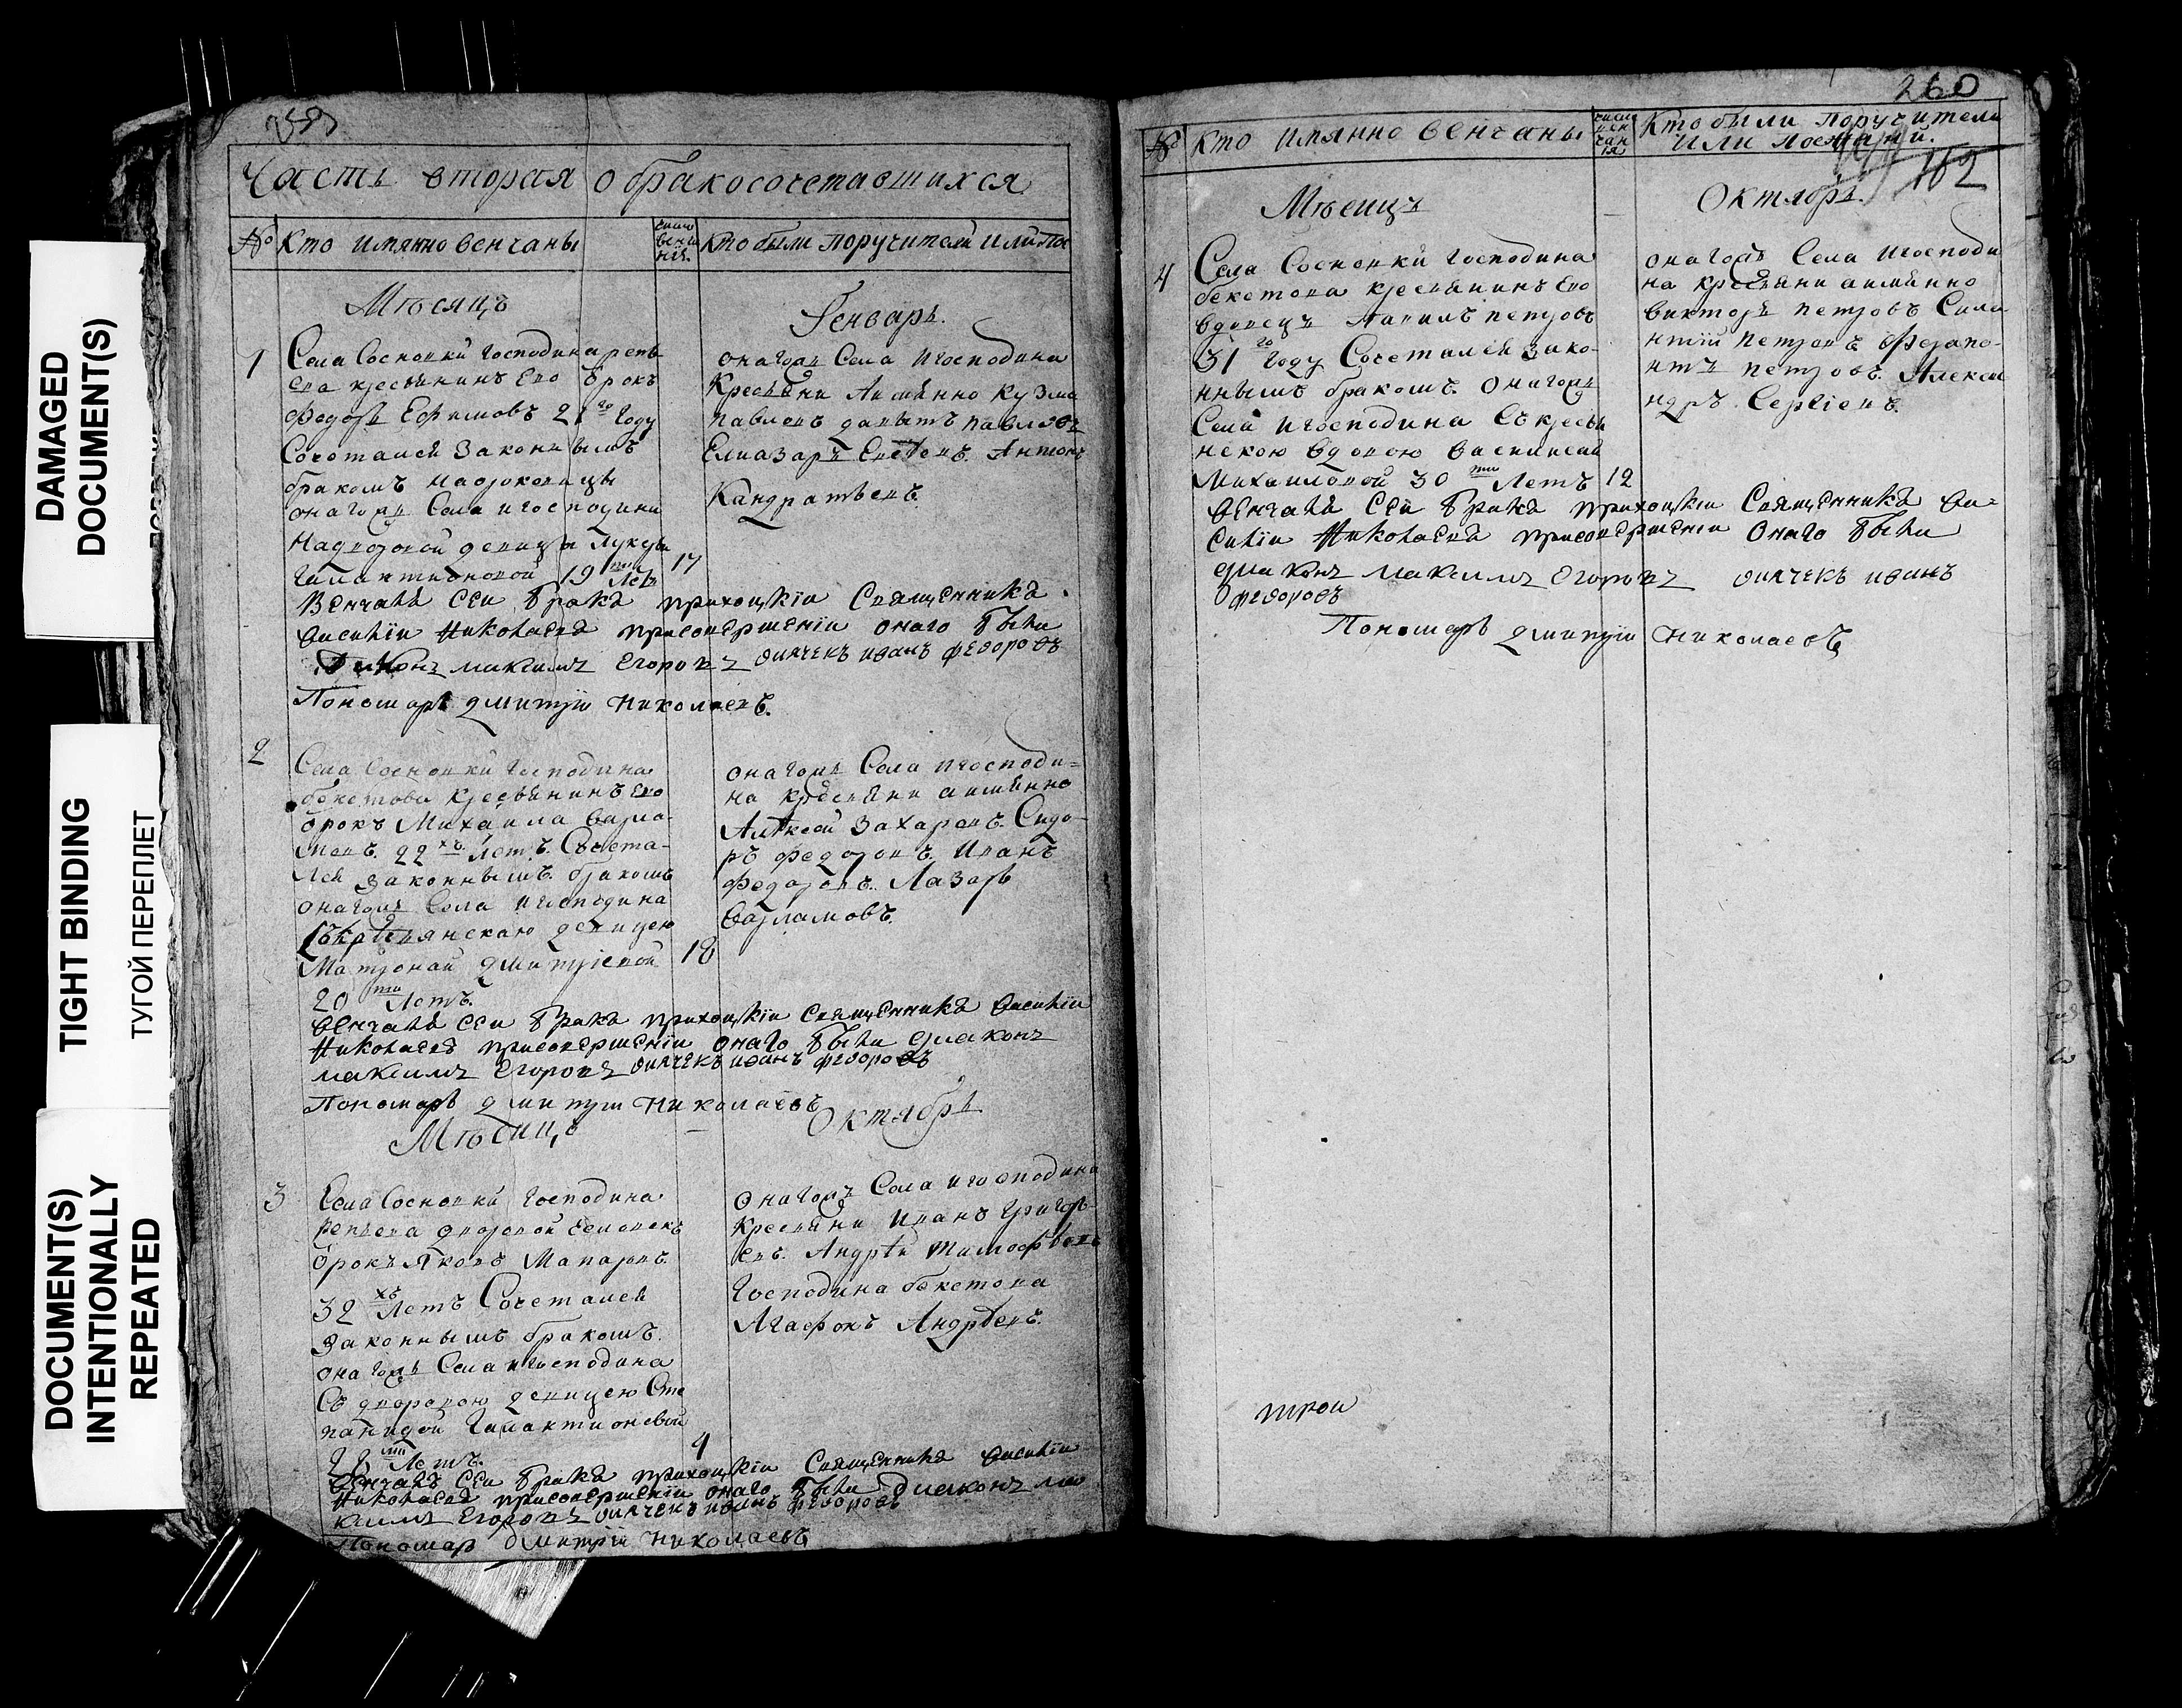 DAMAGED
DOCUMENT(S)
TIGHT BINDING
ТУГОЙ ПЕРЕПЛЕТ
DOCUMENT(S)
INTENTIONALLY
REPEATED
Часть вторая о бракосочетавшихся
№ Кто имянно венчаны
число венча нія.
Кто были поручители или По
Мѣсяцъ
Генварь.
1
Села Сосновки Господина репь
ева кресьянинъ Ево Ѻрокъ
Федоръ Ефимовъ 21 го Году
Сочетался Законнымъ
бракомъ
онагожъ Села и господина
дворовой девицы Лукерьи
Галактионовой 19 ти Летъ
17
онагожъ Села и господина
Кресьяни Аимянно Кузма
павловъ давытъ павловъ
Елиазаръ Антонъ
Кандратьевъ.
Венчалъ сеи бракъ прихоцкіи Священникъ
Василіи Николаевъ присовершеніи онаго были
Диаконъ максимъ Егоровъ диячекъ иванъ федоровъ
Пономаръ дмитрїи Николаевъ.
2
Села Сосновки Господина
бекетова кресьянинъ Ево
Ѻрокъ Михаила Варла-
мовъ. 22 хъ Летъ. Сочета-
лся Законнымъ. бракомъ
онагожъ Села и господина
Съ кресьянскаю девицею
Матроной дмитріевой
20 ти Летъ.
18
онагожъ Села и господи-
на кресьяни аимянно
Алѣксѣй Захаровъ. Сидо-
ръ Федоровъ. Иванъ
Федоровъ. Лазарь
Варламовъ.
Венчалъ сеи бракъ прихоцкіи Священникъ Василіи
Николаевъ присовершеніи онаго были диаконъ
максимъ Егоровъ диячекъ иванъ федоровъ
Пономаръ дмитрїи Николаевъ
Мѣсяцъ
Октябрь
3
Села Сосновки Господина
репьева дворовой человекъ
Ѻрокъ Яковъ Макаровъ
32 хъ Летъ Сочетался
Законнымъ бракомъ.
онагожъ Села и господина
Съ дворовою девицею Сте
панидой Галактионовой
28 ми Летъ.
онагожъ Села и господина
Кресьяни Иванъ Григорь
евъ. Андрѣи Тимофѣевъ
Господина бекетова
Агафонъ Андрѣевъ.
Венчалъ сеи бракъ прихоцкіи Священникъ Василіи
Николаевъ присовершеніи онаго были Диаконъ ма
ксимъ Егоровъ диячекъ иванъ федоровъ
Пономаръ дмитріи Николаевъ
260
№ Кто имянно венчаны
число вен чан ія
Кто были Поручители
или Поезжаній.
162
Мѣсяцъ
Октябрь.
4
Села Сосновки Господина
бекетова кресьянинъ Ево
вдовецъ петровъ
31 го Году Сочетался Зако-
ннымъ бракомъ. Онагожъ
Села и господина Съ кресья
нскою вдовою Василисой
Михаиловой 30 ти Летъ
12
онагожъ Села и господи
на кресьяни аимянно
викторъ петровъ Сила
нтїй петровъ. Ферапо-
нтъ петровъ. Алекса
ндръ Сергіевъ.
Венчалъ сеи бракъ прихоцкіи Священникъ Ва-
силіи Николаевъ присовершеніи Онаго были
диаконъ максимъ Егоровъ диячекъ иванъ
федоровъ
Пономаръ дмитріи Николаевъ
трои